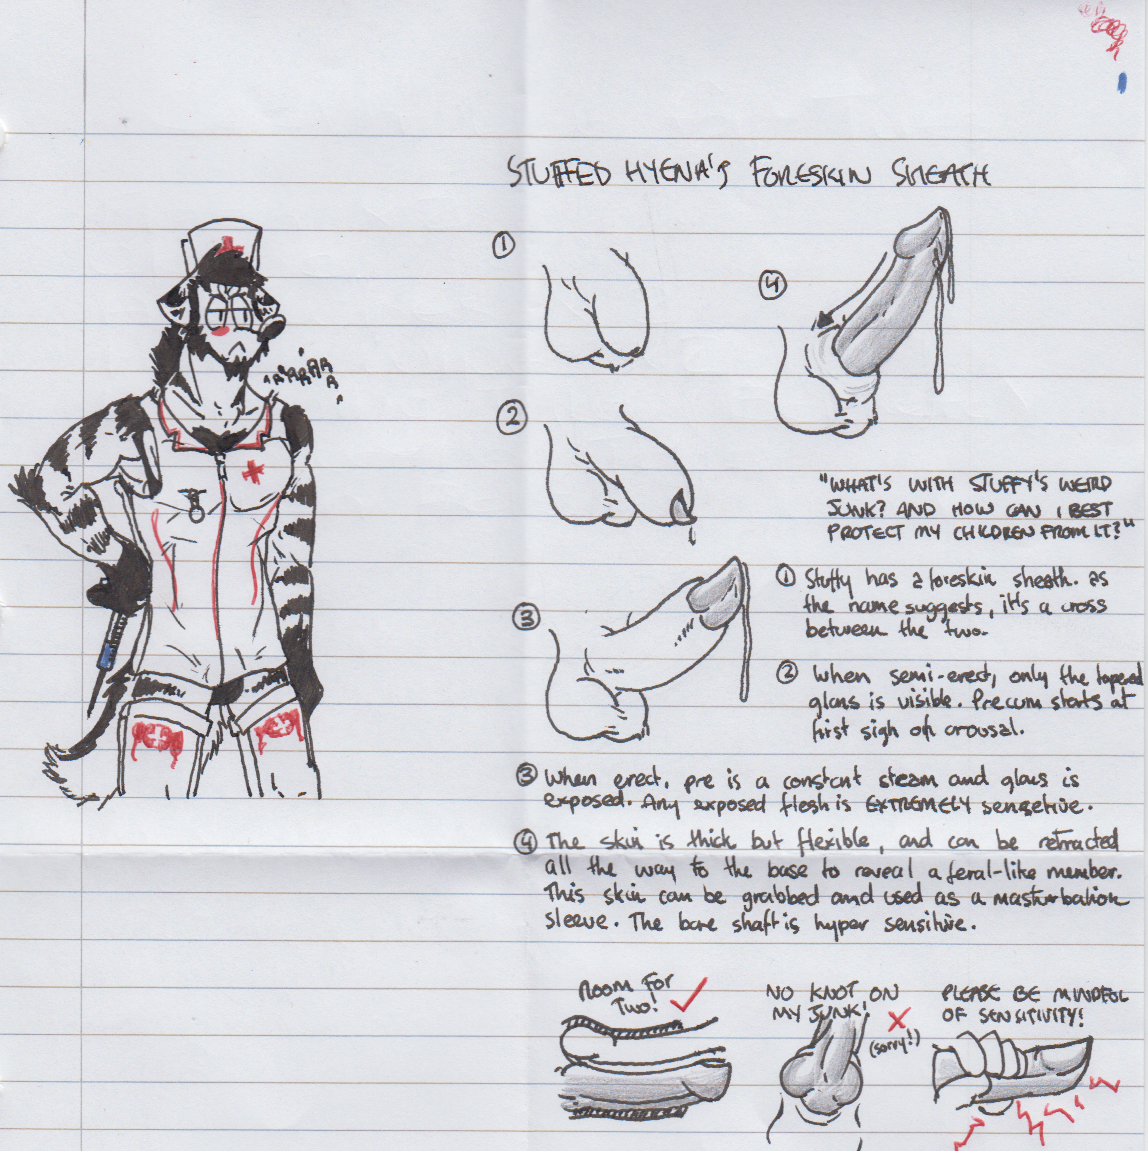 STUFFED HYENA'S FORESKIN SHEATH
1
2
3
4
"WHAT'S WITH STUFFY'S WEIRD
JUNK? AND HOW CAN I BEST
PROTECT MY CHILDREN FROM IT?"
1 Stuffy has a foreskin sheath. as
the name suggests, it's a cross
between the two.
2 When semi-erect, only the tapered
glans is visible. Precum starts at
first sigh of arousal.
3 When erect, pre is a constant steam and glans is
exposed. Any exposed flesh is EXTREMELY sensetive.
4 The skin is thick but flexible, and can be retracted
all the way to the base to reveal a feral-like member.
This skin can be grabbed and used as a masturbation
sleeve. The bare shaft is hyper sensitive.
ROOM FOR
TWO!
NO KNOT ON
MY JUNK!
(sorry!)
PLEASE BE MINDFUL
OF SENSITIVITY!